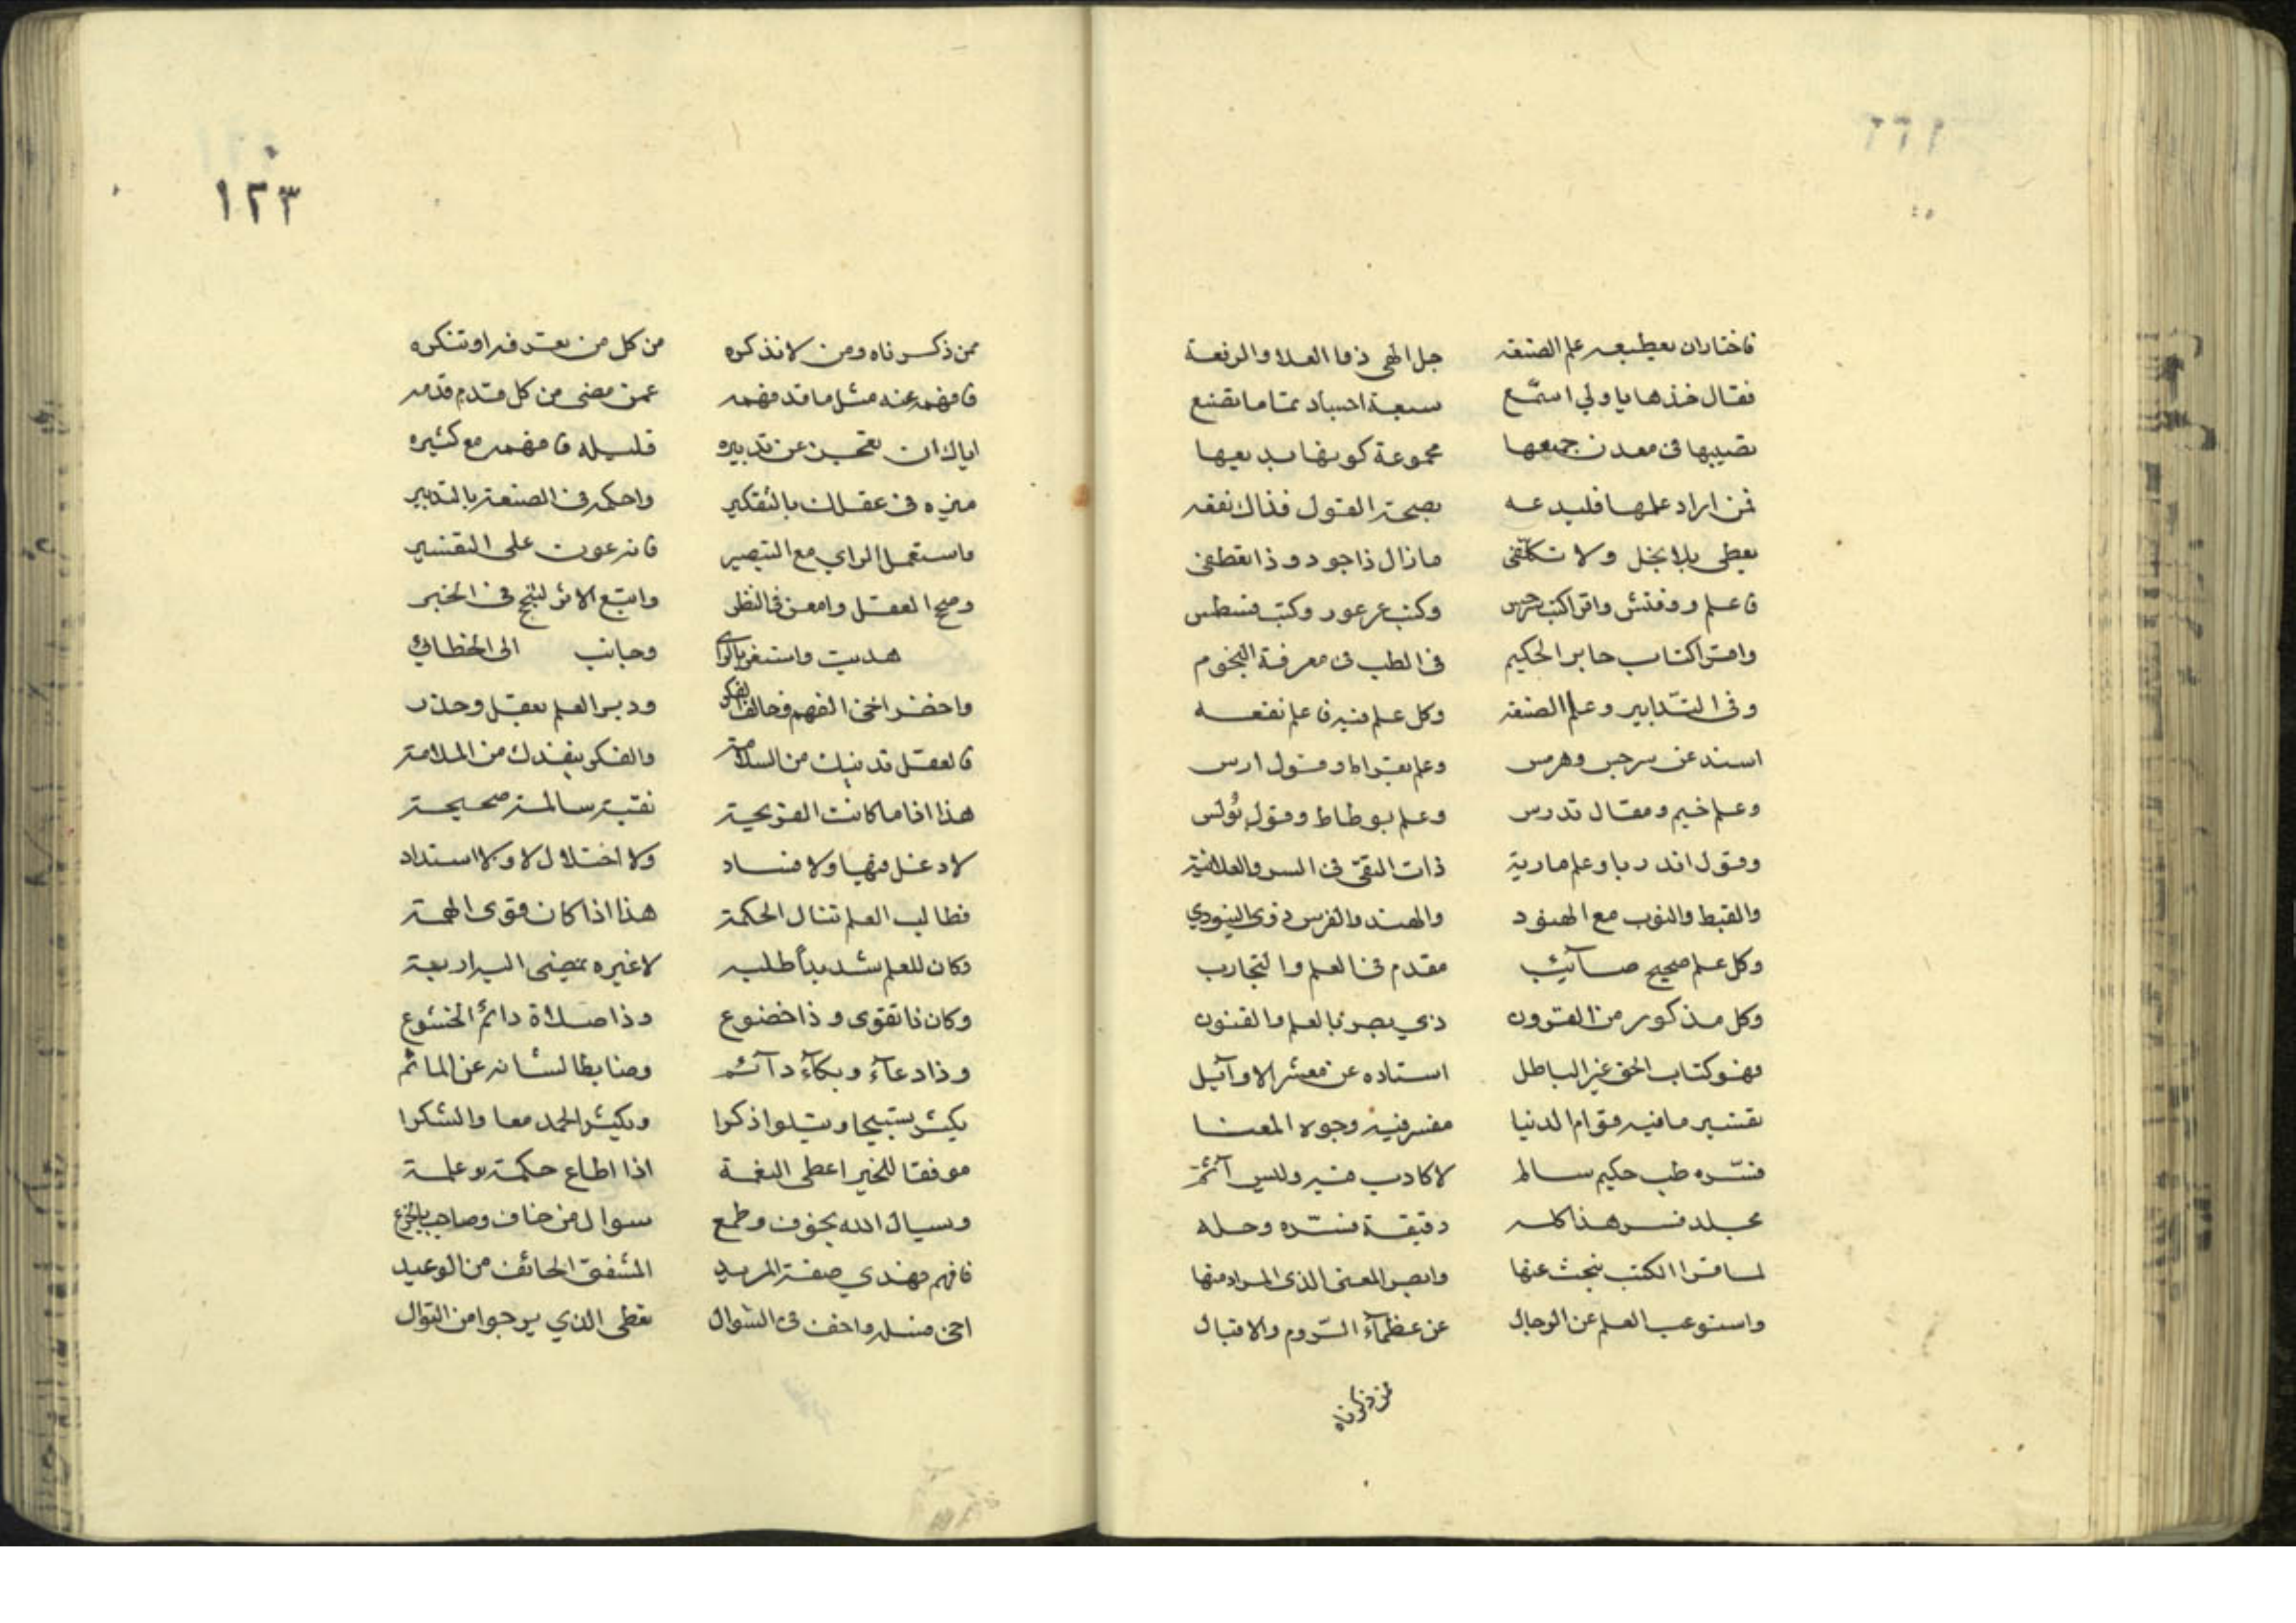 فاختاران يعطيه علم الصنعه جل الهى ذما العلا والرفعة
فقال خذها يا ولي استمع سبعة اجساد تماما تقنع
تصيبها فى معدن جميعها مجموعة كونها بديعها
فمن اراد علمها فليدعه بصحة القول فذاك نفعه
يعطى بلا بخل ولا تكلفى مازال ذا جود وذا تعطفى
فاعلم وفتش واقرا كتب هرمس وكتب وكتب
واقرا كتاب جابر الحكيم فى الطب فى معرفة النجوم
وفى التدابير وعلم الصنعه وكل علم فيه فاعلم نفعه
اسند عن سرجس وهرمس وعلم بقراط وقول ارس
وعلم ومقال تدرس وعلم بوطاط وقول بُولس
وقول اندريا وعلم مارية ذات التقى فى السر والعلانية
والقبط والنوب مع الهنود والهند والفرس ذوى
وكل علم صحيح صآئب مقدم فى العلم والتجارب
وكل مذكور من القرون ذي بصر بالعلم والفنون
فهو كتاب الحق غير الباطل استاده عن معشر الاوآئل
تفسير ما فيه قوام الدنيا مفسر فيه وجوه المعنا
فسّره طب حكيم سالم لا كادب فيه وليس آثم
مجلد فسر هذا كله دقيقة فسّره وحله
لما قرا الكتب بحث عنها وابصر المعنى الذى المراد منها
واستوعب العلم عن الرجال عن عظمآء الرّوم والاقبال
من ذكرناه
١٢٣
ممن ذكرناه ومن لا نذكره من كل من تعرفه او تنكره
فافهمه عنه مثل ما قد فهمه عمن مضى من كل قدم قدمه
اياك ان تعجز عن تدبيره قليله فافهمه مع كثيره
ميزه فى عقلك بالتفكير واحكمه فى الصنعة بالتدبير
فاستعمل الراي مع التبصير فانه عون على التفسير
وصح العقل وامعن فى النظر واتبع الاثر فى الخبر
هديت وجانب الى الخطاء
واحضر اخى الفهم وخالف الفكر ودبر العلم بعقل وحذر
فالعقل من السلامة والفكر ينقذك من الملامة
هذا اذا ما كانت القريحة نقية سالمة صحيحة
لا دغل فيها ولا فساد ولا اختلال لا ولا
فطالب العلم تنال الحكمة هذا اذا كان قوى الهمة
وكان للعلم شديداً طلبه لا غيره
وكان ذا تقوى وذا خضوع وذا صلاة دائم الخشوع
وذا دعآء وبكآء دآئم وضابطا لسانه عن المآثم
يكثر تسبيحا ويتلوا ذكرا ويكثر الحمد معا والشكرا
موفقا للخير اعطى النعمة اذا اطاع حكمة وعلمة
ويسال الله بخوف وطمع سوال من خاف وصاحب بالجزع
فافهم فهذي صفة المريد المشفق الخائف من الوعيد
اخى فسله واخف فى السّوال تعطى الذي يرجوا من النّوال